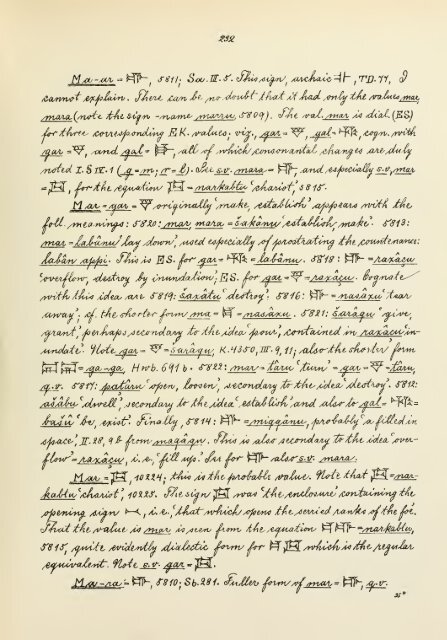 232
Ma-ar = 𒈥, 5811; Sa. III. 5. This sign, archaic, TD. 77, I
cannot explain. There can be no doubt that it had only the values mar,
mara (note the sign-name marru, 5809). The val. mar is dial. (ES)
for three corresponding EK. values, viz., gar = 𒃻, gal =, cogn. with
gar = 𒃻, and gal =, all of which consonantal changes are duly
noted I. § IV. 1 (g = m; r = l). See s.v. mara =, and especially s.v. mar
=, for the equation = narkabtu 'chariot', 5815.
Mar = gar = 𒃻 originally 'make, establish' appears with the
foll. meanings: 5820: mar, mara = šakânu 'establish, make'. 5813:
mar = labânu 'lay down', used especially of prostrating the countenance:
labân appi. This is ES. for gar = = labânu. 5818: 𒈥 = raxâçu
'overflow, destroy by inundation', ES. for gar = 𒃻 = raxâçu. Cognate
with this idea are 5819: šaxâtu 'destroy': 5816: 𒈥 = nasâxu 'tear
away'; cf. the shorter form ma = = nasâxu. 5821: šarâqu 'give,
grant', perhaps, secondary to the idea 'pour', contained in raxâçu 'in-
undate'. Note gar = 𒃻 = šarâqu, K. 4350, III. 9, 11; also the shorter form
= ga-ga, Hwb. 691 b. 5822: mar = târu 'turn' = gar = 𒃻 = târu,
q.v. 5817: paṭâru 'open, loosen', secondary to the idea 'destroy'. 5812:
ašâbu 'dwell', secondary to the idea 'establish', and also to gal = =
bašû 'be, exist'. Finally, 5814: 𒈥 = miqqânu, probably 'a filled in
space', II. 28, 9 b from maqâqu. This is also secondary to the idea 'over-
flow' = raxâçu, i.e., 'fill up'. See for 𒈥 also s.v. mara.
Mar =, 10224; this is the probable value. Note that = nar-
kabtu 'chariot', 10223. The sign was 'the enclosure' containing the
opening sign, i.e., 'that which opens the serried ranks of the foe.'
That the value is mar is seen from the equation = narkabtu,
5815, quite evidently dialectic form for which is the regular
equivalent. Note s.v. gar =.
Ma-ra = 𒈥, 5810; Sb. 281. Fuller form of mar = 𒈥, q.v.